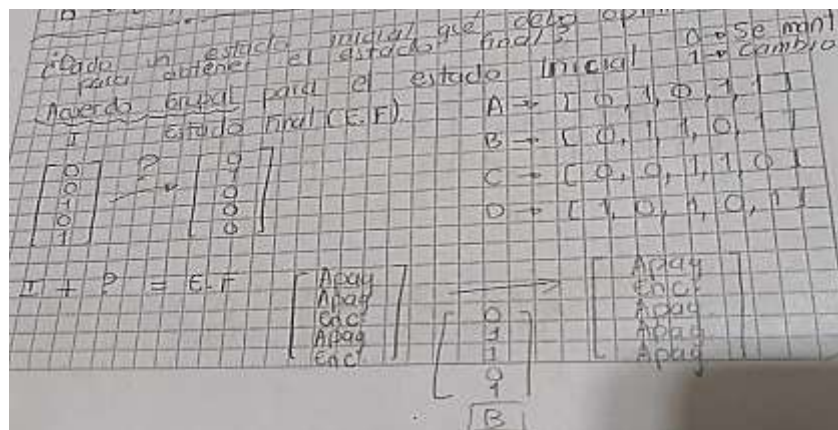 ¿Dado un estado inicial que debo
para obtener el estado final?
0 → Se mant
1 → Cambio
Acuerdo grupal para el estado inicial
Estado final (E.F)
A → [0, 1, 0, 1, 1]
B → [0, 1, 1, 0, 1]
C → [0, 0, 1, 1, 0]
D → [1, 0, 1, 0, 1]
I
?
0 0
0 1
1 0
0 0
1 0
I + ? = E.F
Apag Apag
Apag Enc
Enc Apag
Apag Apag
Enc Apag
0
1
1
0
1
B